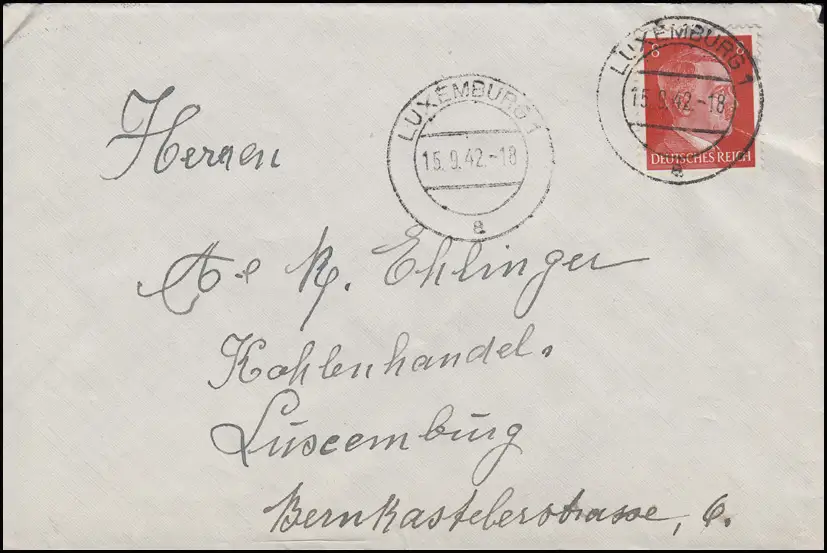 LUXEMBURG 1
15.9.42.-18
a
LUXEMBURG 1
15.9.42.-18
a
8 8
DEUTSCHES REICH
Herren
A. & R. Ehlinger
Kohlenhandel.
Luxemburg
Bernkastelerstrasse, 6.